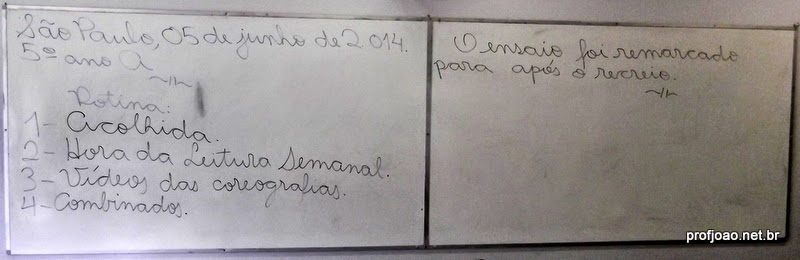 São Paulo, 05 de junho de 2014.
5º ano A
Rotina:
1- Acolhida.
2- Hora da Leitura Semanal.
3- Vídeos das coreografias.
4- Combinados.
O ensaio foi remarcado
para após o recreio.
profjoao.net.br